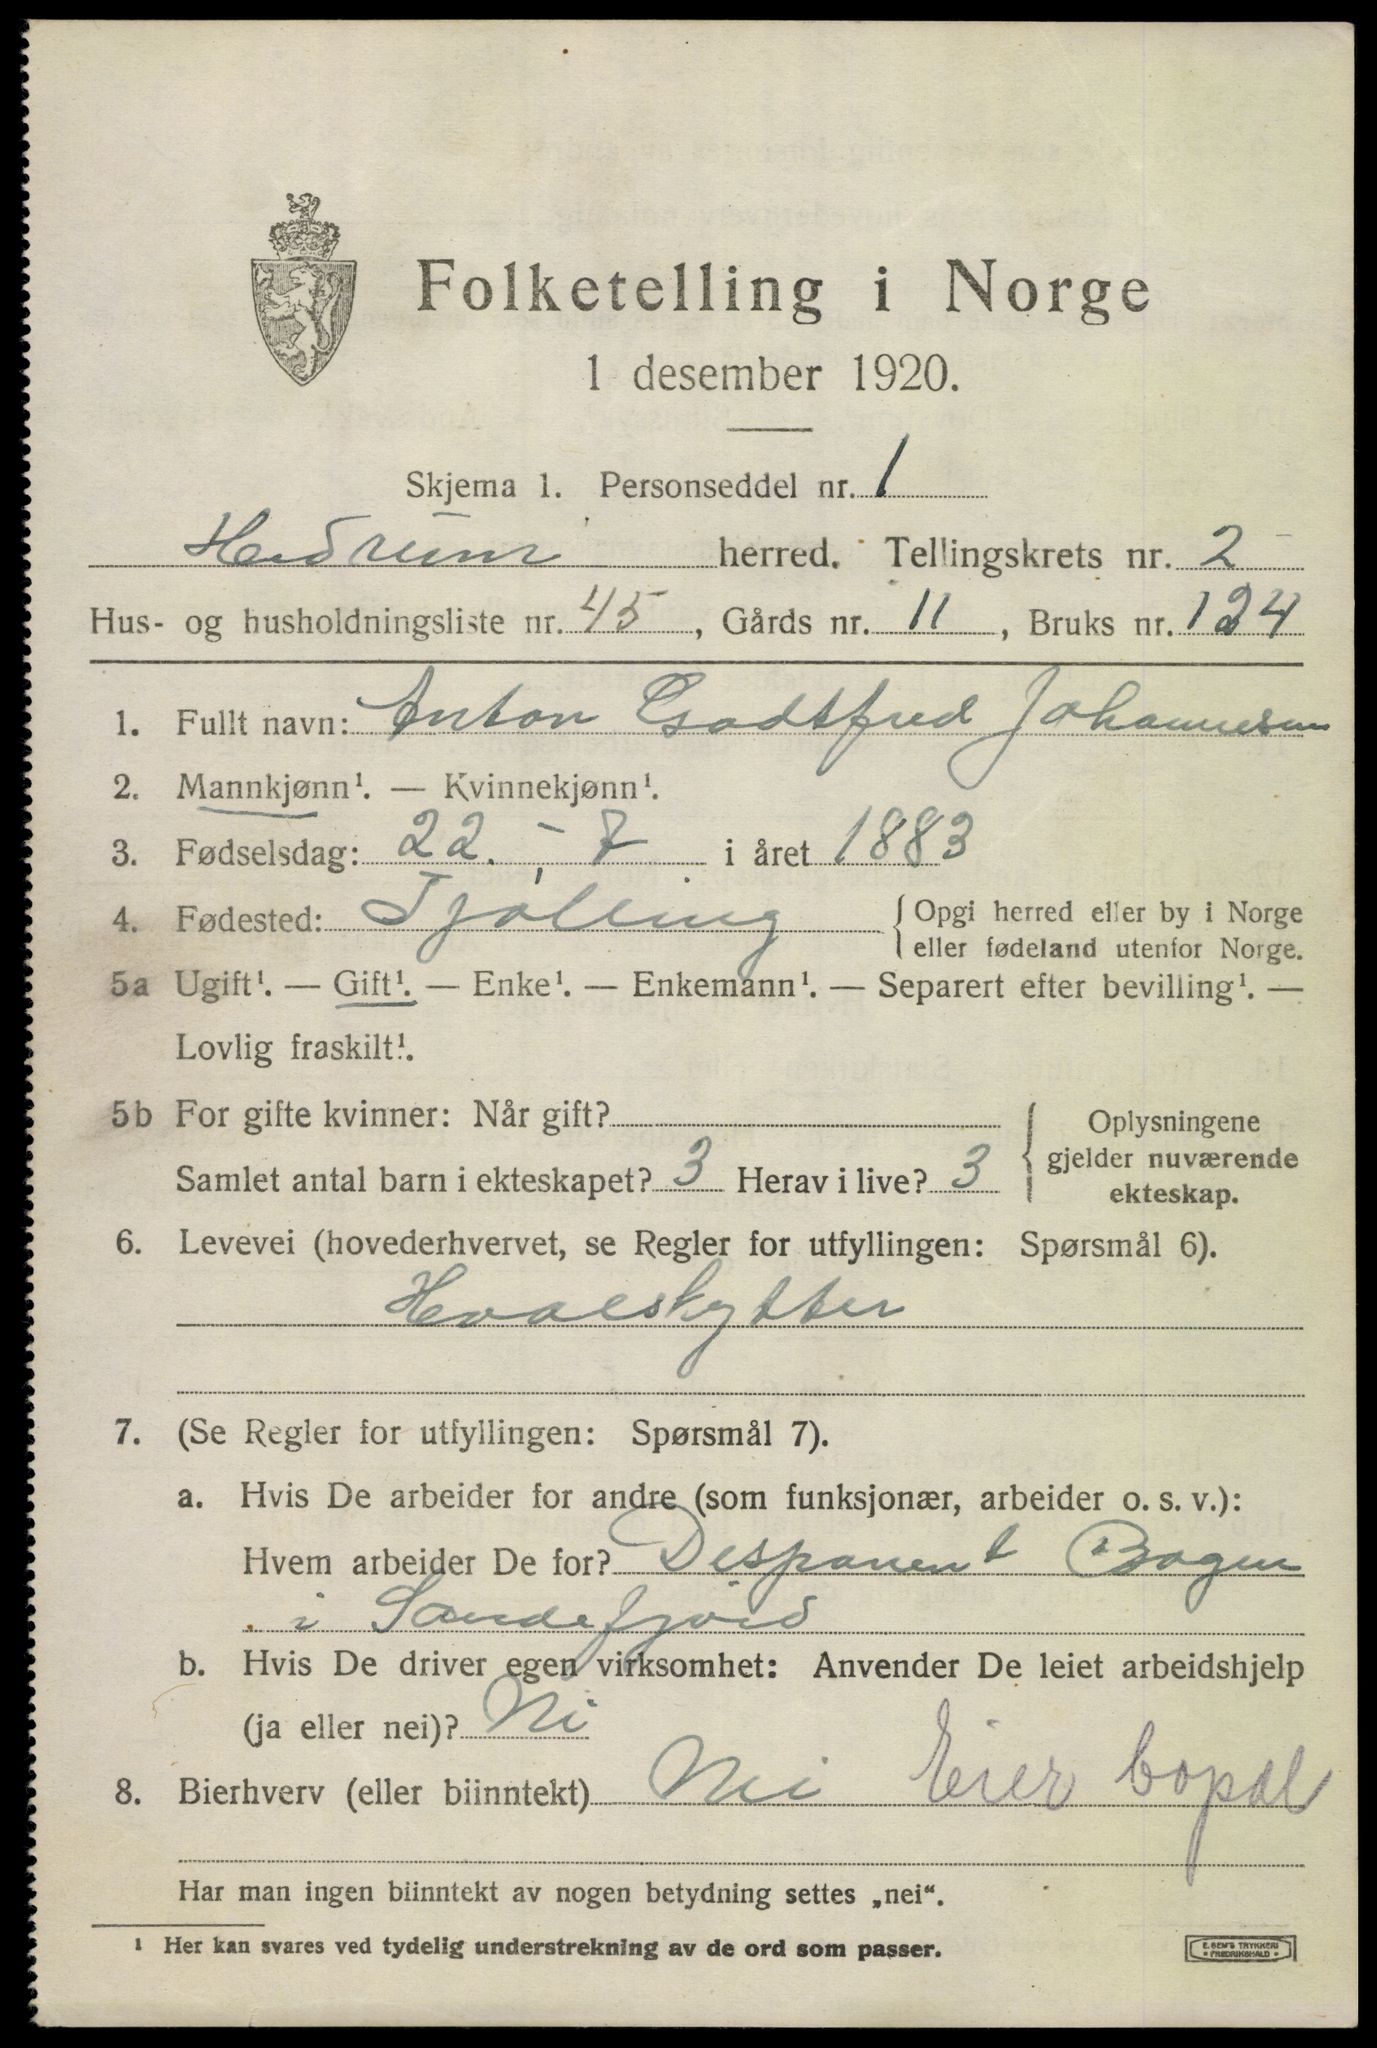 Folketelling i Norge
1 desember 1920.
Skjema 1. Personseddel nr. 1
Hedrum herred. Tellingskrets nr. 2
Hus- og husholdningsliste nr. 45, Gårds nr. 11, Bruks nr. 124
1. Fullt navn: Anton Godtfred Johannesen
2. Mannkjønn¹. — Kvinnekjønn¹.
3. Fødselsdag: 22. - 7 i året 1883
4. Fødested: Tjølling { Opgi herred eller by i Norge
eller fødeland utenfor Norge.
5a Ugift¹. — Gift¹. — Enke¹. — Enkemann¹. — Separert efter bevilling¹. —
Lovlig fraskilt¹.
5b For gifte kvinner: Når gift? { Oplysningene
gjelder nuværende
ekteskap.
Samlet antal barn i ekteskapet? 3 Herav i live? 3
6. Levevei (hovederhvervet, se Regler for utfyllingen: Spørsmål 6).
Hvalskytter
7. (Se Regler for utfyllingen: Spørsmål 7).
a. Hvis De arbeider for andre (som funksjonær, arbeider o. s. v.):
Hvem arbeider De for? Desponent Bogen
i Sandefjord
b. Hvis De driver egen virksomhet: Anvender De leiet arbeidshjelp
(ja eller nei)? Nei
8. Bierhverv (eller biinntekt) Nei Eier bopæl
Har man ingen biinntekt av nogen betydning settes „nei“.
¹ Her kan svares ved tydelig understrekning av de ord som passer.
E. SEM'S TRYKKERI
FREDRIKSHALD